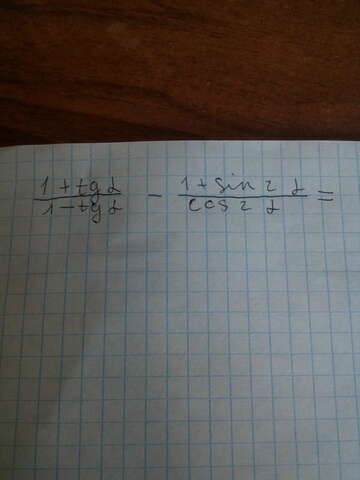 (1 + tg α)/(1 - tg α) - (1 + sin 2 α)/(cos 2 α) =